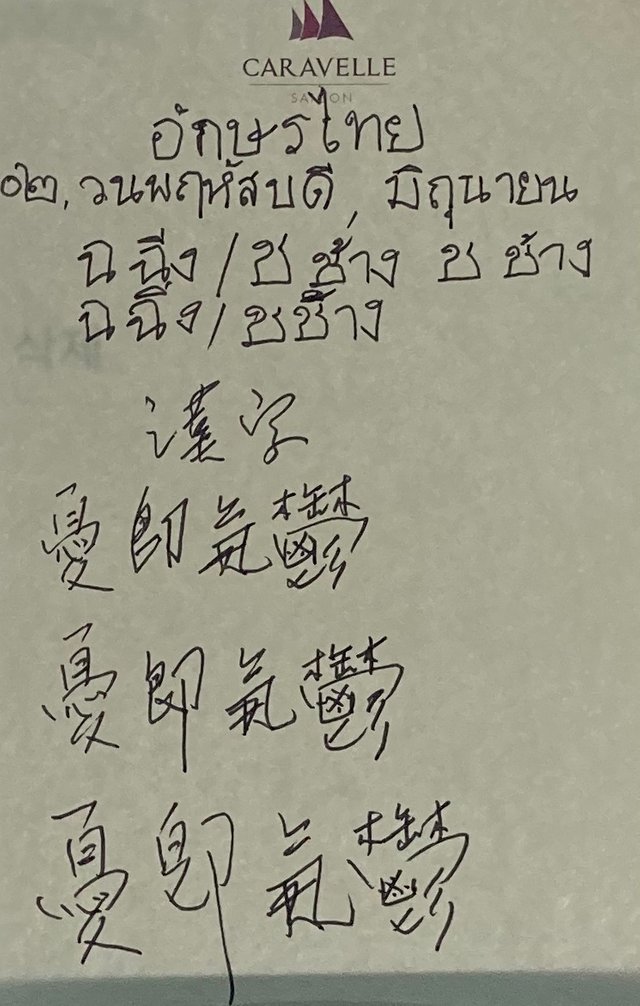 CARAVELLE
SAIGON
อักษรไทย
๐๒, วนพฤหัสบดี, มิถุนายน
ฉ ฉิ่ง / ช ช้าง ช ช้าง
ฉ ฉิ่ง / ช ช้าง
漢字
憂卽氣鬱
憂卽氣鬱
憂卽氣鬱